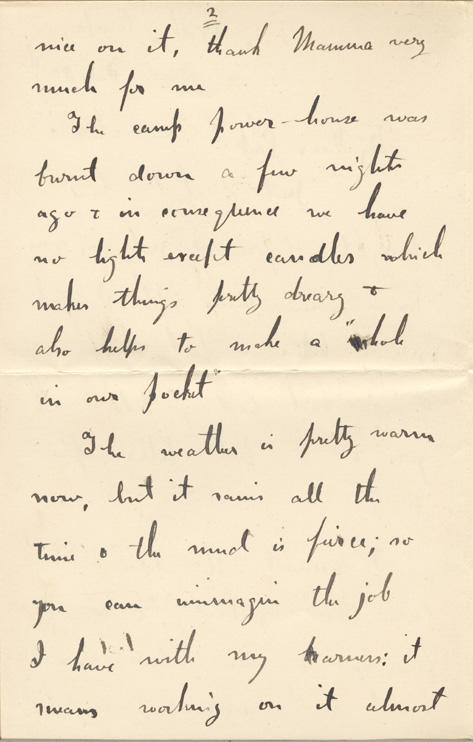 2
nice on it, thank Mamma very
much for me
The camp power-house was
burnt down a few nights
ago & in consequence we have
no lights except candles which
makes things pretty dreary &
also helps to make a "whole
in our pocket"
The weather is pretty warm
now, but it rains all the
time & the mud is fierce; so
you can immagin the job
I have with my harness: it
means working on it almost